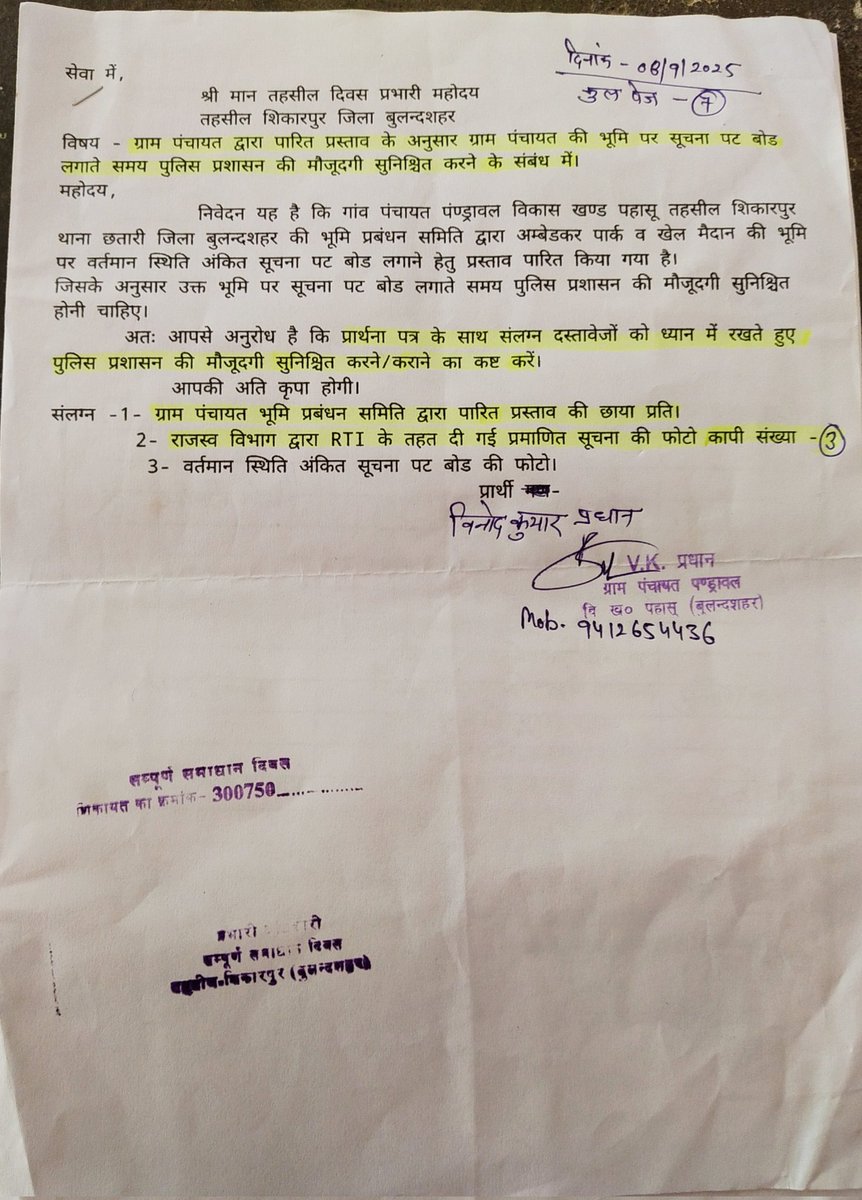 दिनांक - 08/9/2025
कुल पेज - 7
सेवा में,
श्री मान तहसील दिवस प्रभारी महोदय
तहसील शिकारपुर जिला बुलन्दशहर
विषय - ग्राम पंचायत द्वारा पारित प्रस्ताव के अनुसार ग्राम पंचायत की भूमि पर सूचना पट बोड
लगाते समय पुलिस प्रशासन की मौजूदगी सुनिश्चित करने के संबंध में।
महोदय,
निवेदन यह है कि गांव पंचायत पंण्ड्रावल विकास खण्ड पहासू तहसील शिकारपुर
थाना छतारी जिला बुलन्दशहर की भूमि प्रबंधन समिति द्वारा अम्बेडकर पार्क व खेल मैदान की भूमि
पर वर्तमान स्थिति अंकित सूचना पट बोड लगाने हेतु प्रस्ताव पारित किया गया है।
जिसके अनुसार उक्त भूमि पर सूचना पट बोड लगाते समय पुलिस प्रशासन की मौजूदगी सुनिश्चित
होनी चाहिए।
अतः आपसे अनुरोध है कि प्रार्थना पत्र के साथ संलग्न दस्तावेजों को ध्यान में रखते हुए
पुलिस प्रशासन की मौजूदगी सुनिश्चित करने/कराने का कष्ट करें।
आपकी अति कृपा होगी।
संलग्न -1- ग्राम पंचायत भूमि प्रबंधन समिति द्वारा पारित प्रस्ताव की छाया प्रति।
2- राजस्व विभाग द्वारा RTI के तहत दी गई प्रमाणित सूचना की फोटो कापी संख्या - 3
3- वर्तमान स्थिति अंकित सूचना पट बोड की फोटो।
प्रार्थी -
विनोद कुमार प्रधान
V.K. प्रधान
ग्राम पंचायत पण्ड्रावल
वि ख० पहासू (बुलन्दशहर)
Mob. 9412654436
सम्पूर्ण समाधान दिवस
शिकायत का क्रमांक- 300750
प्रभारी
सम्पूर्ण समाधान दिवस
तहसील-शिकारपुर (बुलन्दशहर)